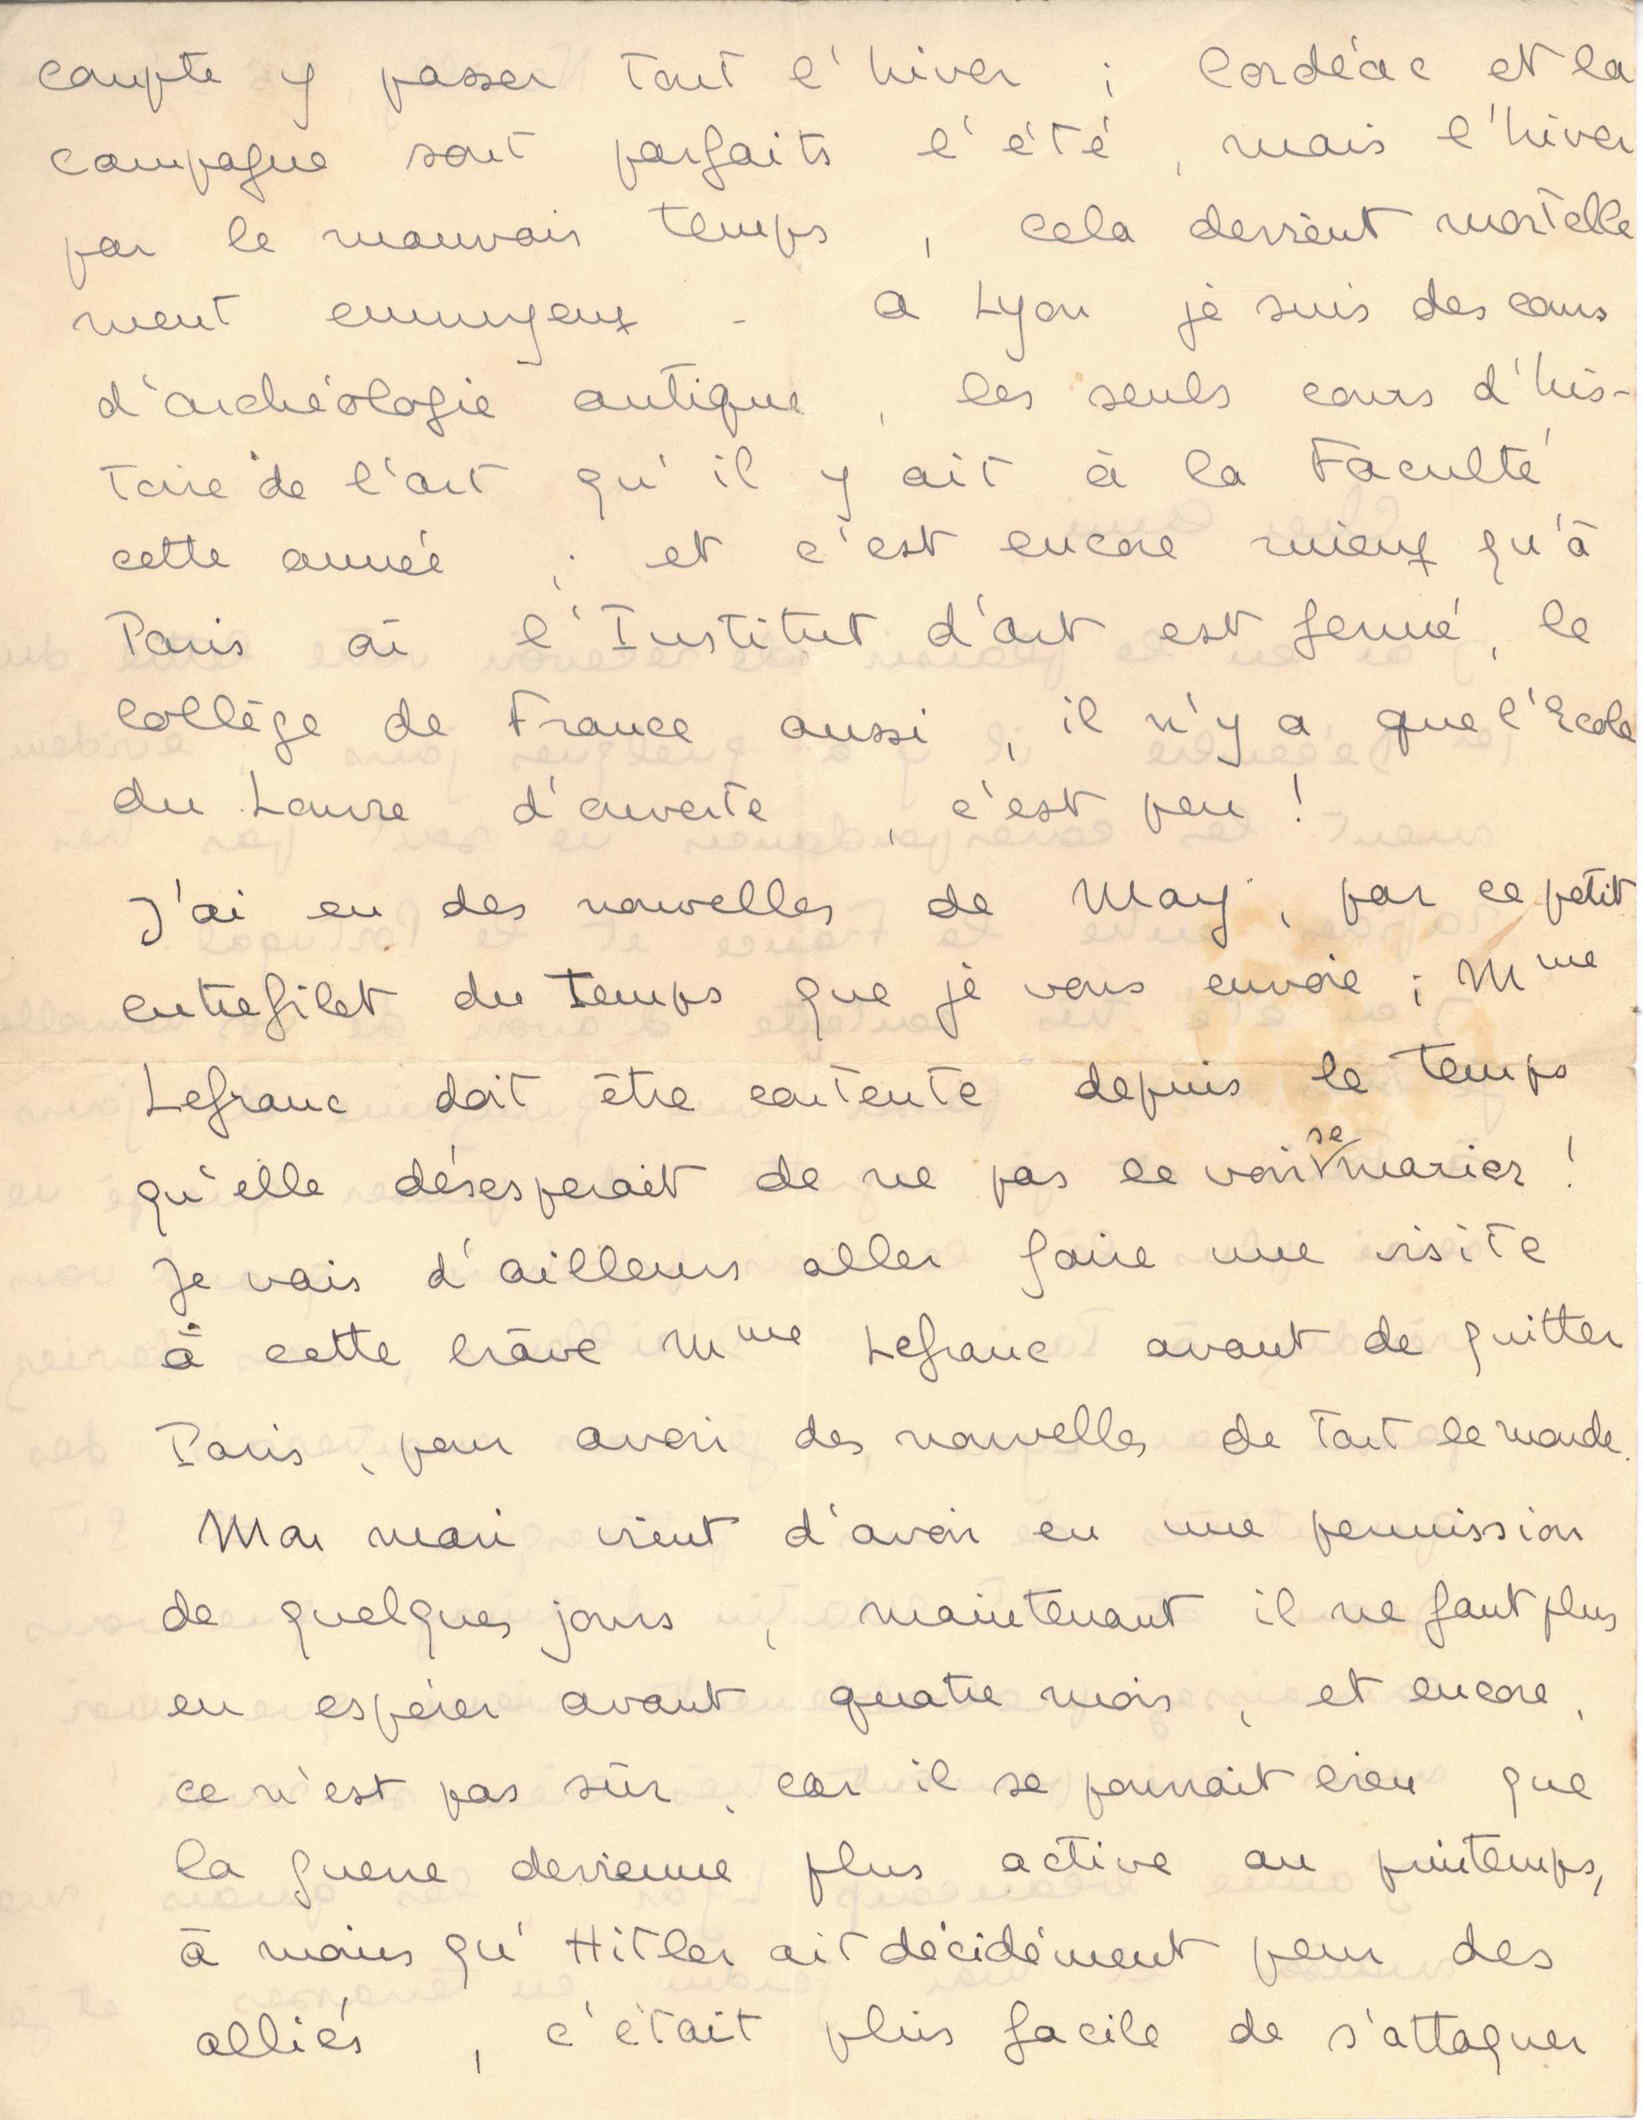 compte y passer tout l'hiver ; Cordéac et la
campagne sont parfaits l'été, mais l'hiver
par le mauvais temps, cela devient mortelle
ment ennuyeux - a Lyon je suis des cours
d'archéologie antique, les seuls cours d'his-
toire de l'art qu'il y ait à la Faculté
cette année ; et c'est encore mieux qu'à
Paris où l'Institut d'art est fermé, le
Collège de France aussi, il n'y a que l'Ecole
du Louvre d'ouverte, c'est peu !
J'ai eu des nouvelles de May, par ce petit
entrefilet du Temps que je vous envoie ; Mme
Lefranc doit être contente depuis le temps
qu'elle désesperait de ne pas le voir se marier !
Je vais d'ailleurs aller faire une visite
à cette brave Mme Lefranc avant de quitter
Paris, pour avoir des nouvelles de tout le monde.
Mon mari vient d'avoir eu une permission
de quelques jours, maintenant il ne faut plus
en espérer avant quatre mois, et encore,
ce n'est pas sûr, car il se pourrait bien que
la guerre devienne plus active au printemps,
à moins qu'Hitler ait décidément peur des
alliés, c'était plus facile de s'attaquer